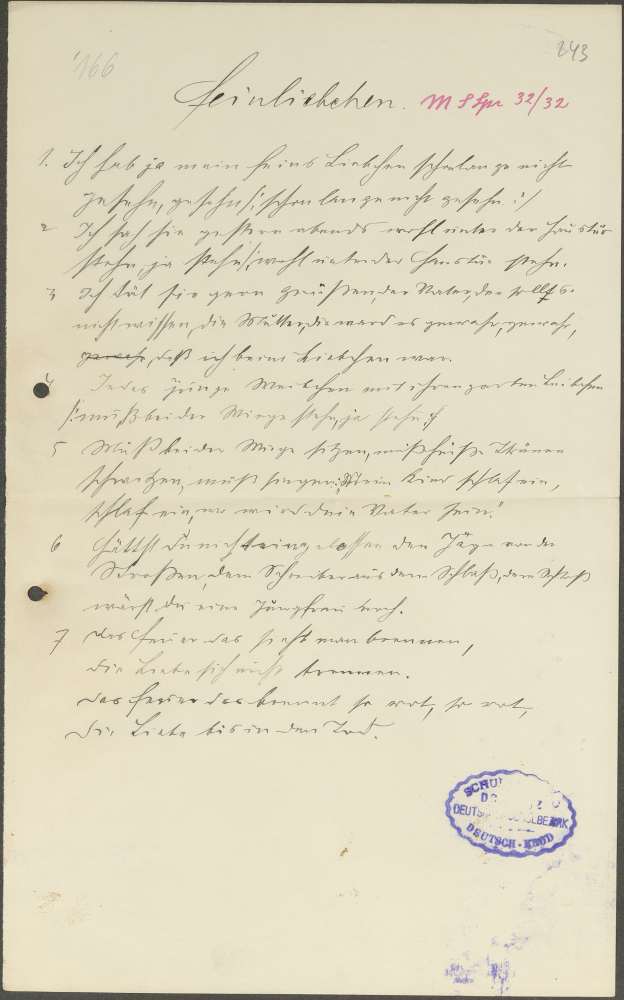 166
243
Feinliebchen. M S Spr 32/32
1. Ich hab ja mein feins Liebchen schon lange nicht
gesehn, gesehn /: schon lange nicht gesehn :/
2 Ich sah sie gestern abends wohl unter der Haustür
stehn ja stehn /: wohl unter der Haustür stehn.
3 Ich tät sie gern grüßen, der Vater, der sollt es
nicht wissen, die Mutter, die ward es gewahr, gewahr,
gewahr, daß ich beim Liebchen war.
4 Jedes junge Weibchen mit ihrem zarten Leibchen
/: muß bei der Wiege stehn, ja stehn :/
5 Muß bei der Wiege sitzen, muß heiße Tränen
schwitzen, muß singen: Mein Kind schlaf ein,
schlaf ein, wo wird dein Vater sein!
6 Hättst du nicht eingelassen den Jäger von der
Straßen, dem Schreiber aus dem Schloß, dem Schloß
wärst du eine Jungfrau noch.
7 Das Feuer das sieht man brennen,
die Liebe sich nicht trennen.
das Feuer das brennt so rot, so rot,
Die Liebe bis in den Tod.
SCHUL
DEUTSCH
BEZIRK
DEUTSCH-